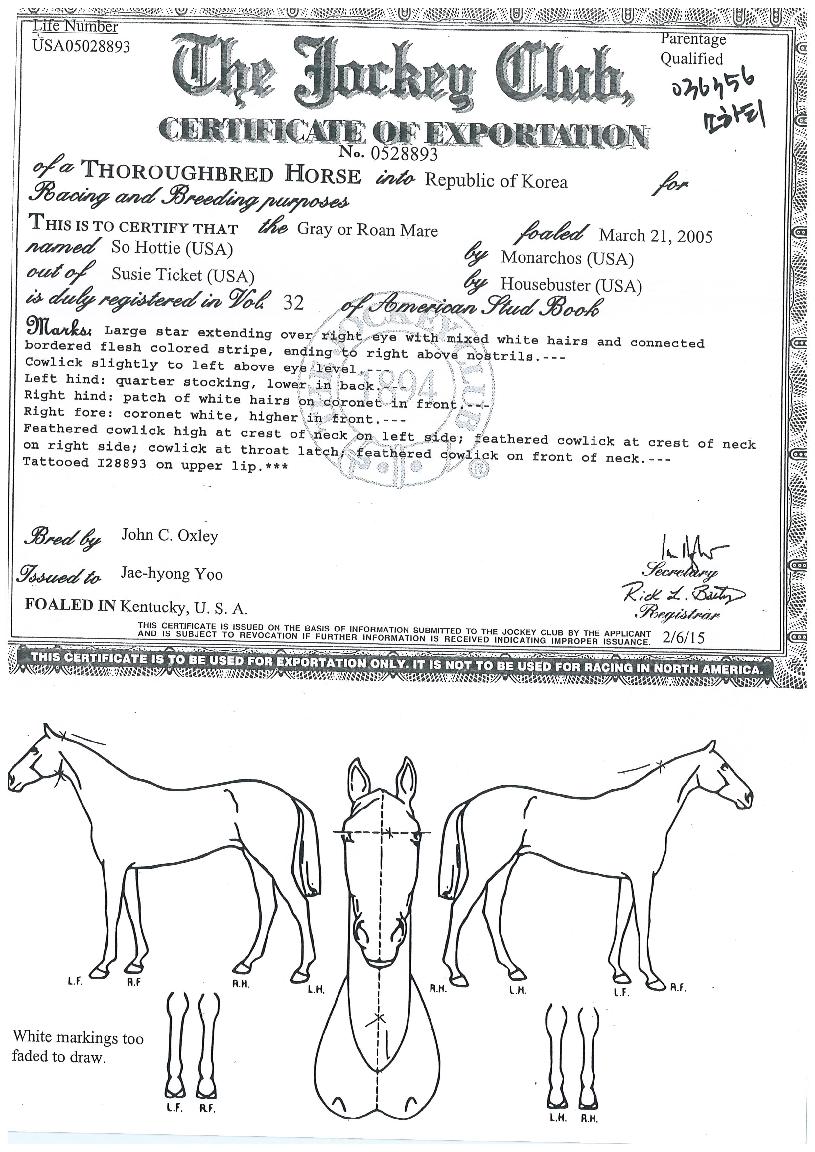 Life Number
USA05028893
Parentage
Qualified
036456
The Jockey Club,
CERTIFICATE OF EXPORTATION
No. 0528893
of a THOROUGHBRED HORSE into Republic of Korea for
Racing and Breeding purposes
THIS IS TO CERTIFY THAT the Gray or Roan Mare foaled March 21, 2005
named So Hottie (USA) by Monarchos (USA)
out of Susie Ticket (USA) by Housebuster (USA)
is duly registered in Vol. 32 of American Stud Book
Marks: Large star extending over right eye with mixed white hairs and connected
bordered flesh colored stripe, ending to right above nostrils.---
Cowlick slightly to left above eye level.---
Left hind: quarter stocking, lower in back.---
Right hind: patch of white hairs on coronet in front.---
Right fore: coronet white, higher in front.---
Feathered cowlick high at crest of neck on left side; feathered cowlick at crest of neck
on right side; cowlick at throat latch; feathered cowlick on front of neck.---
Tattooed I28893 on upper lip.***
THE JOCKEY CLUB
1894
®
Bred by John C. Oxley
Issued to Jae-hyong Yoo
Secretary
Registrar
FOALED IN Kentucky, U. S. A.
THIS CERTIFICATE IS ISSUED ON THE BASIS OF INFORMATION SUBMITTED TO THE JOCKEY CLUB BY THE APPLICANT
AND IS SUBJECT TO REVOCATION IF FURTHER INFORMATION IS RECEIVED INDICATING IMPROPER ISSUANCE. 2/6/15
THIS CERTIFICATE IS TO BE USED FOR EXPORTATION ONLY. IT IS NOT TO BE USED FOR RACING IN NORTH AMERICA.
L.F. R.F R.H. L.H. R.H. L.H. L.F. R.F.
White markings too
faded to draw.
L.F. R.F. L.H. R.H.